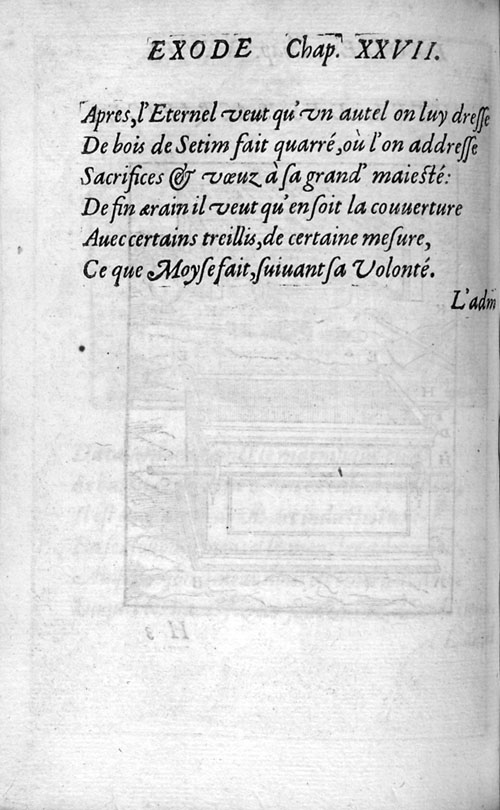 EXODE Chap. XXVII.
Apres, l'Eternel veut qu'vn autel on luy dreſſe
De bois de Setim fait quarré, où l'on addreſſe
Sacrifices & vœuz à ſa grand' maieſté:
De fin ærain il veut qu'en ſoit la couuerture
Auec certains treillis, de certaine meſure,
Ce que Moyſe fait, ſuiuant ſa Volonté.
L'adm